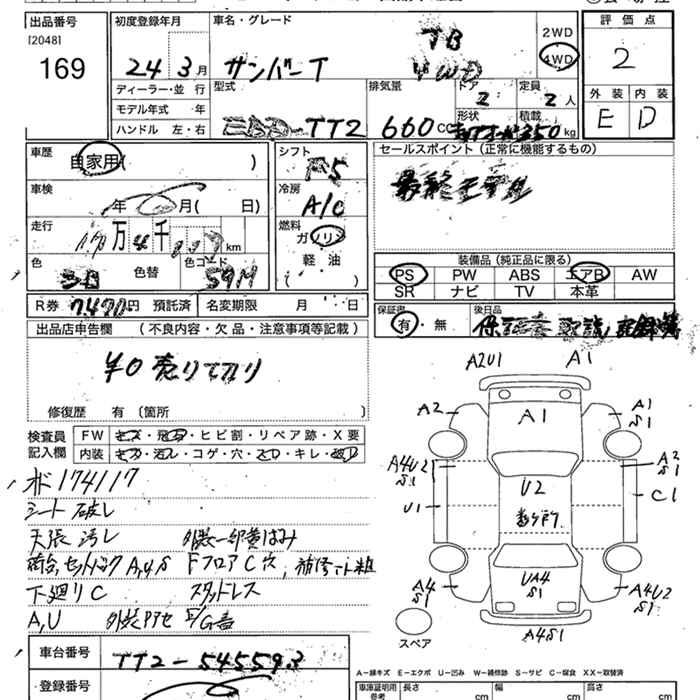 出品番号
[2048]
169
初度登録年月
24 3月
ディーラー・並 行
モデル年式 年
ハンドル 左・右
車名・グレード
TB
サンバーT 4WD
2WD
4WD
型式
EBD-TT2
排気量
660cc
ドア
2
定員
2人
形状
積載
350kg
評価点
2
外装 内装
E D
車歴
自家用( )
車検
年 月( 日)
走行
17万4千117km
色 色替 色コード
シロ 59M
シフト
F5
冷房
A/C
燃料
ガソリン
軽 油
( )
セールスポイント(正常に機能するもの)
最終モデル
装備品(純正品に限る)
PS PW ABS エアB AW
SR ナビ TV 本革
R券 7,470円 預託済
名変期限 月 日
保証書
有・無
後日品
保証書 取説 記録簿
出品店申告欄 (不良内容・欠品・注意事項等記載)
¥0売り切り
修復歴 有 (箇所 )
検査員
記入欄
FW キズ・飛石・ヒビ割・リペア跡・X要
内装 キズ・汚レ・コゲ・穴・スレ・キレ・破レ
メーター174117
シート破レ
天張汚レ 外装一部黄ばみ
荷台,セットバックA,U,S Fフロア C 穴,補修コート粗
下廻りC スタッドレス
A,U 外装アセ E/G音
車台番号
TT2-545593
登録番号
A2U1 A1
A2
A1
A1
S1
A4U2
S1
U1
U2
数ヶ所
A2
S1
C1
A4
S1
UA4
S1
A4U2
S1
A4S1
スペア
A-線キズ E-エクボ U-凹み W-補修跡 S-サビ C-腐食 XX-取替済
車庫証明用
参考
長さ cm
幅 cm
高さ cm